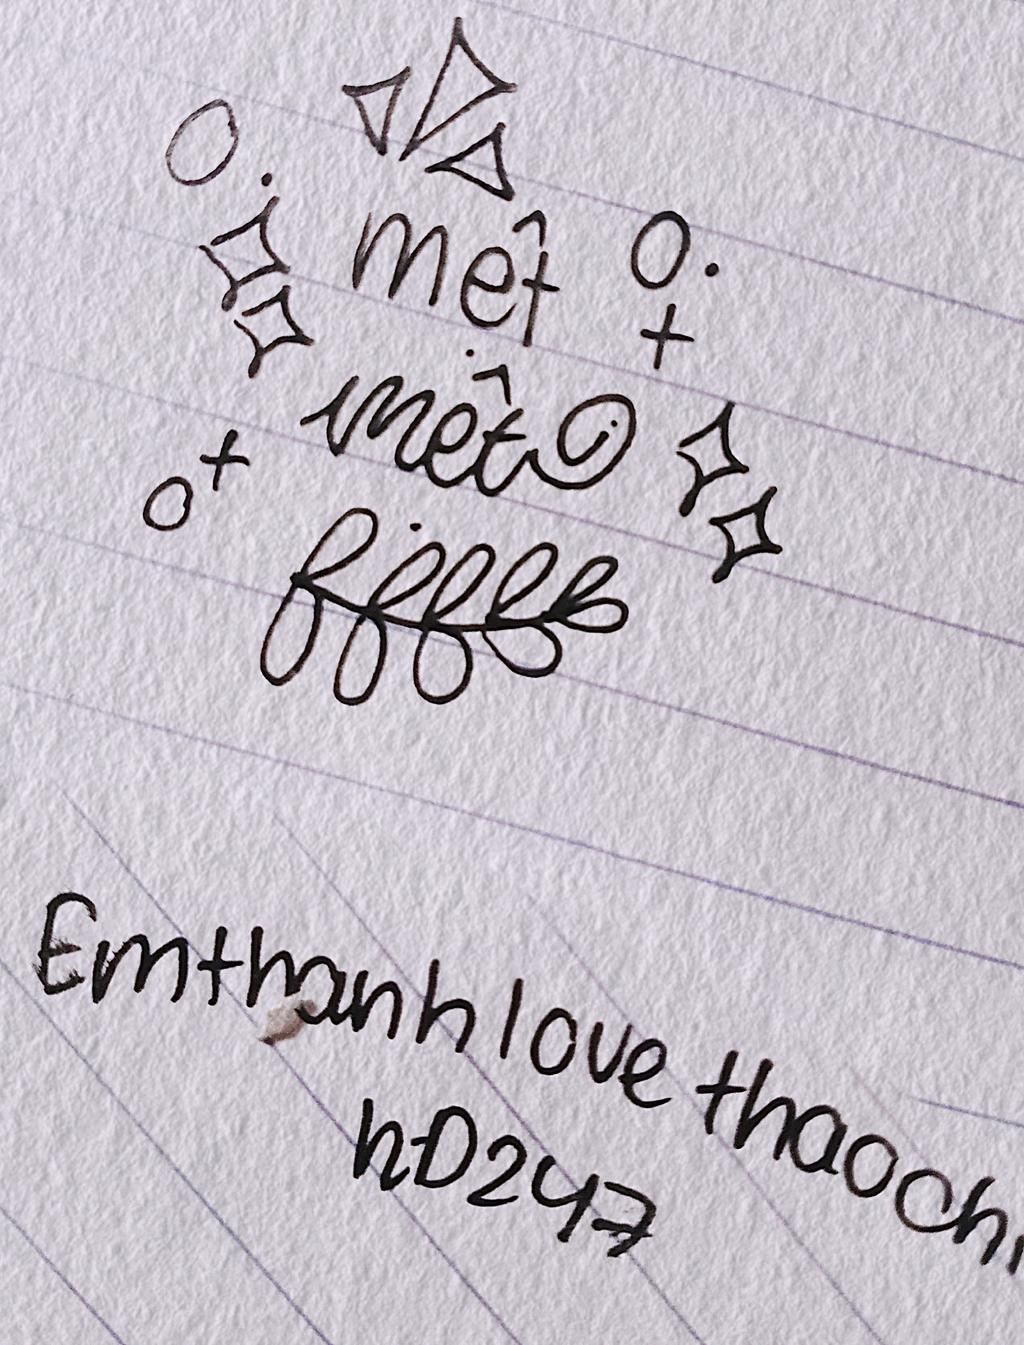 mệt
mệt
Emthanh love thaochi
hD247